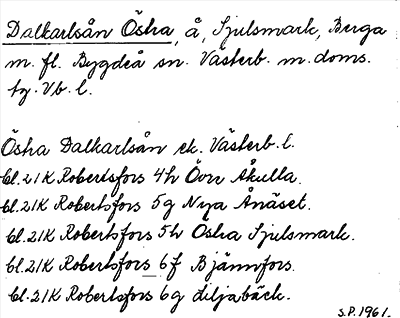 Dalkarlsån Östra, å, Sjulsmark, Berga
m. fl. Bygdeå sn. Västerb. m. doms.
tg. Vb. l.
Östra Dalkarlsån ek. Västerb. l.
bl. 21K Robertsfors 4h Övre Åkulla.
bl. 21K Robertsfors 5g Nya Ånäset.
bl. 21K Robertsfors 5h Östra Sjulsmark.
bl. 21K Robertsfors 6f Bjännfors.
bl. 21K Robertsfors 6g Liljabäck.
S.P. 1961.